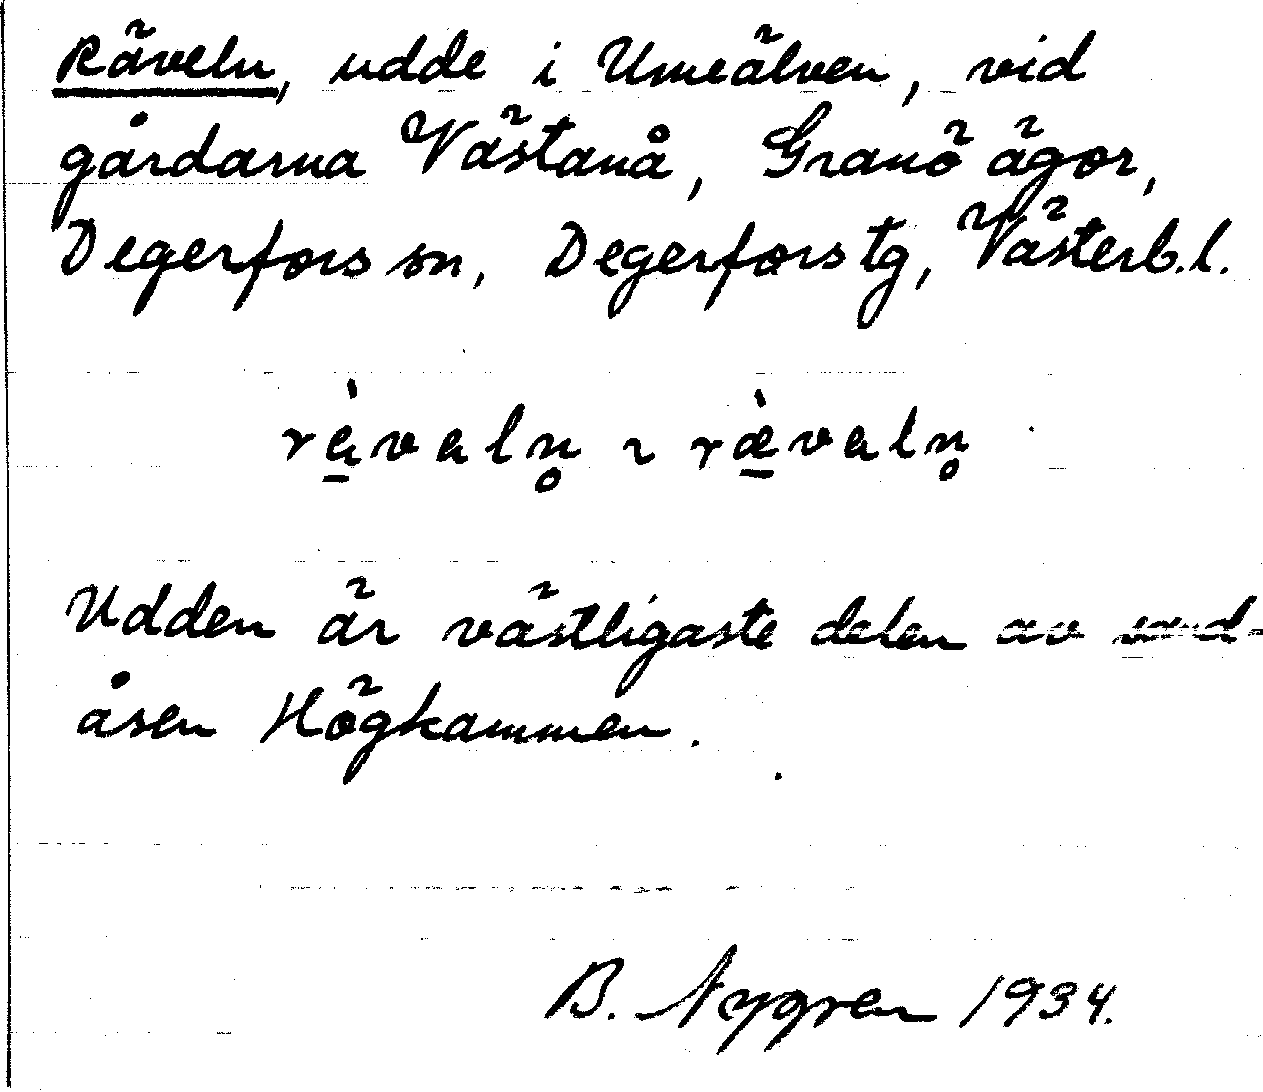 Räveln, udde i Umeälven, vid
gårdarna Västanå, Granö ägor,
Degerfors sn, Degerfors tg, Västerb.l.
rà̱valn̥ ~ ræ̱̀valn̥
Udden är västligaste delen av sand-
åsen Högkammen.
B. Nygren 1934.